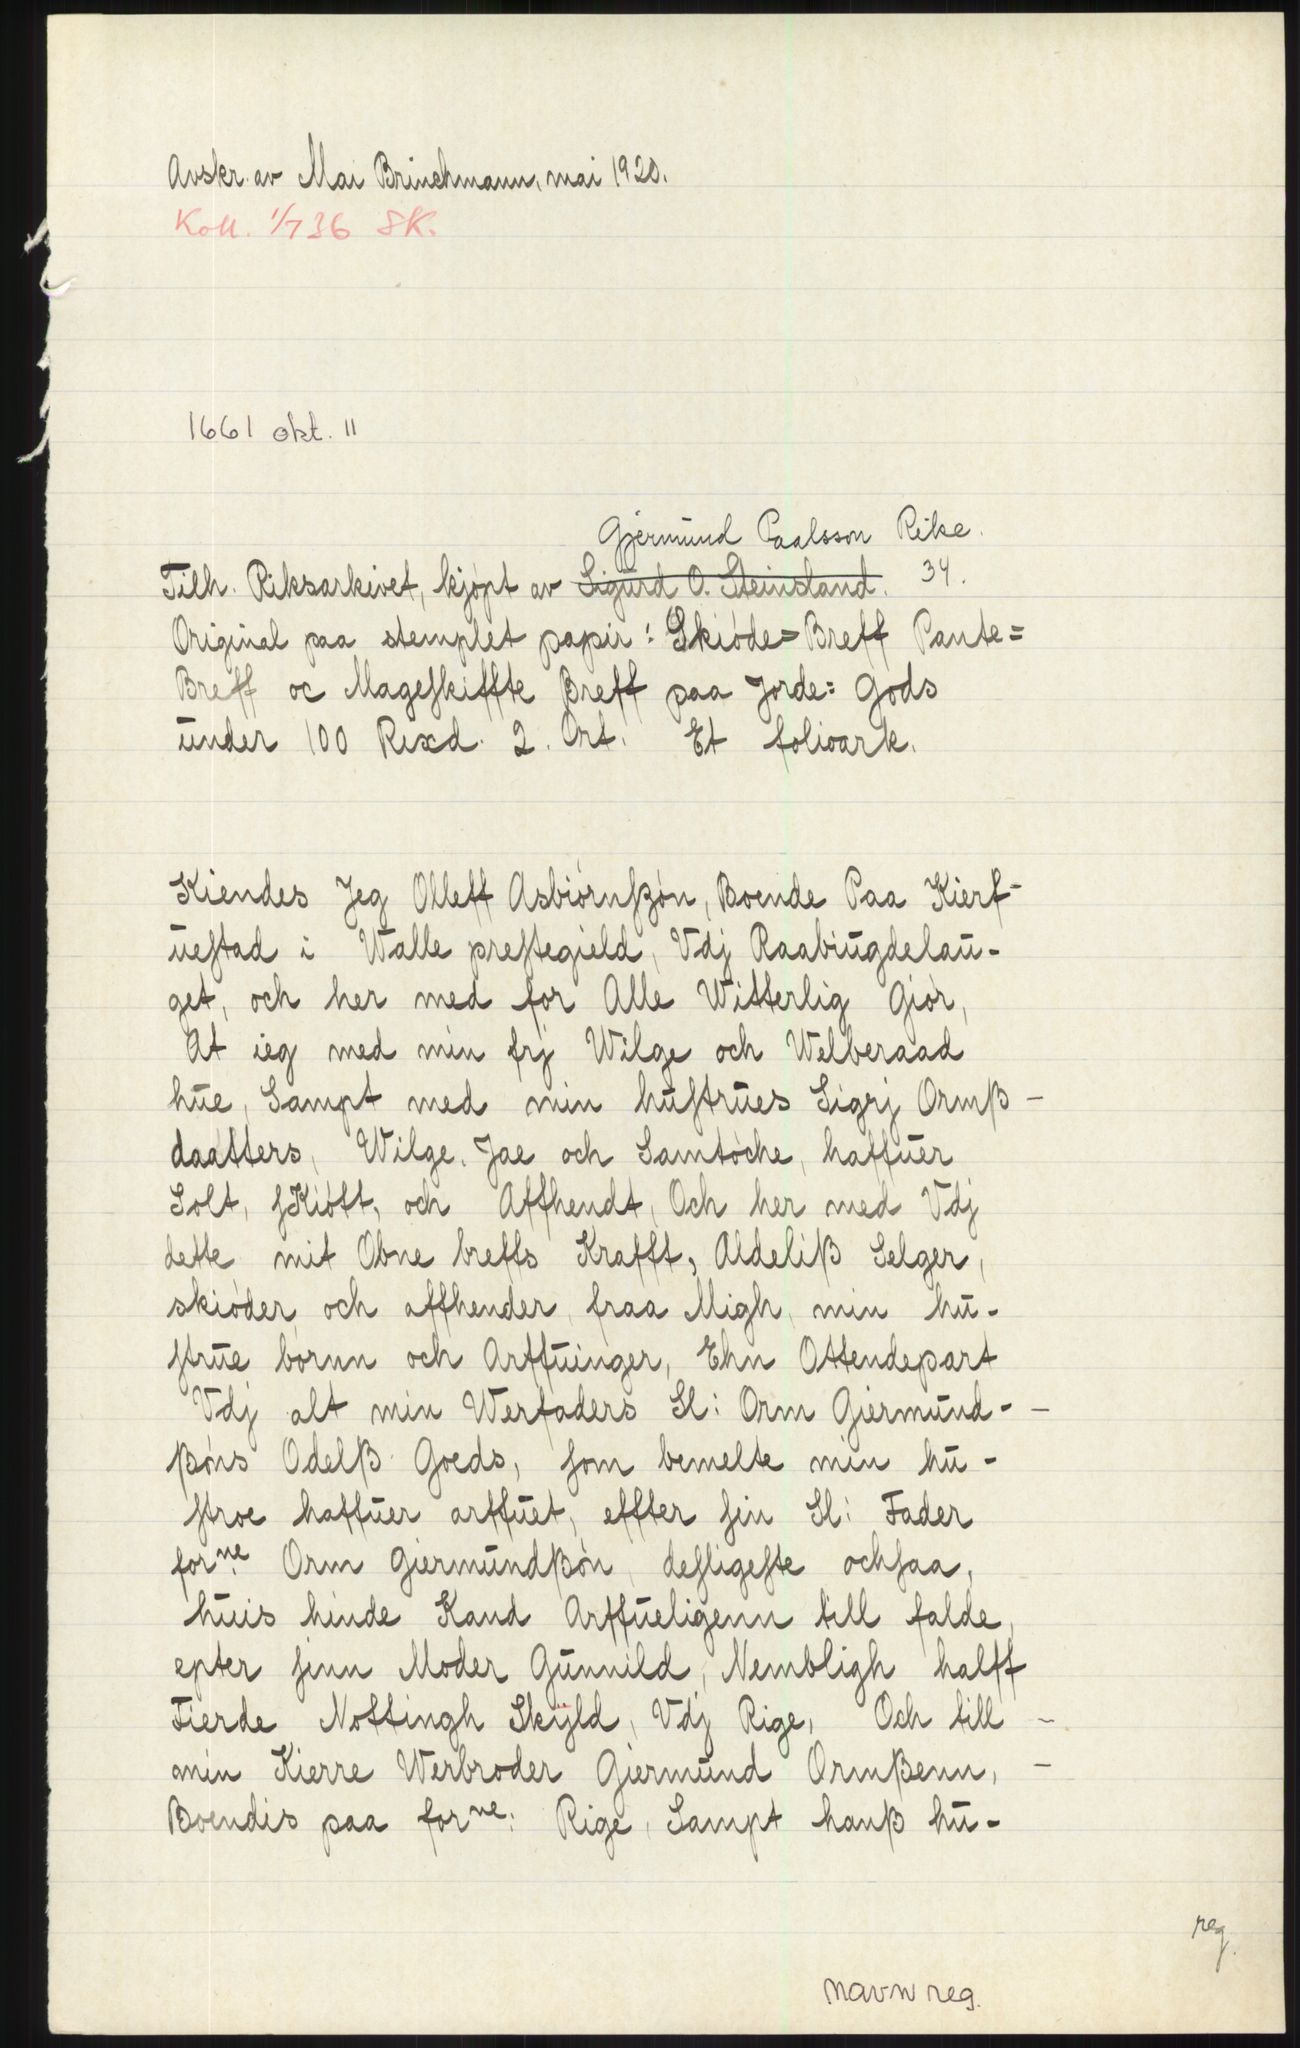 Avskr. av Mai Brinchmann, mai 1920.
Koll. 1/7 36 SK.
1661 okt. 11
Gjermund Paalsson Rike.
Tilh. Riksarkivet, kjøpt av Sigurd O. Steinsland. 34.
Original paa stemplet papir: Skiøde= Breff Pante=
Breff oc Mageskiffte Breff paa Jorde= Gods
under 100 Rixd. 2. Ort. Et folioark.
Kiendes Jeg Olleff Asbiørnszøn, Boende Paa Kierf-
uestad i Walle prestegield, Vdj Raabiugdelau-
get, och her med for Alle Witterlig Giør,
At ieg med min frj Wilge och Welberaad
hue, Sampt med min hustrues Sigrj Ormß -
daatters, Wilge. Jae och Samtøche, haffuer
Solt, skiøtt, och Affhendt, Och her med Vdj
dette mit Obne breffs Krafft, Aldeliß Selger,
skiøder och affhender, fraa Migh, min hu-
strue børnn och Arffuinger, Ehn Ottendepart
Vdj alt min Werfaders Sl: Orm Giermund- -
ßøns Odelß Goeds, som bemelte min hu -
stroe haffuer arffuet, effter sin Sl: Fader
forne: Orm Giermundßøn, desligeste ochsaa,
huis hinde Kand Arffueligenn till falde,
epter sinn Moder Gunnild, Nembligh halff
Fierde Nottingh Skyld, Vdj Rige, Och till -
min Kierre Werbroder Giermund Ormßenn, -
Boendis paa forne: Rige, Sampt hanß hu-
reg.
navn reg.